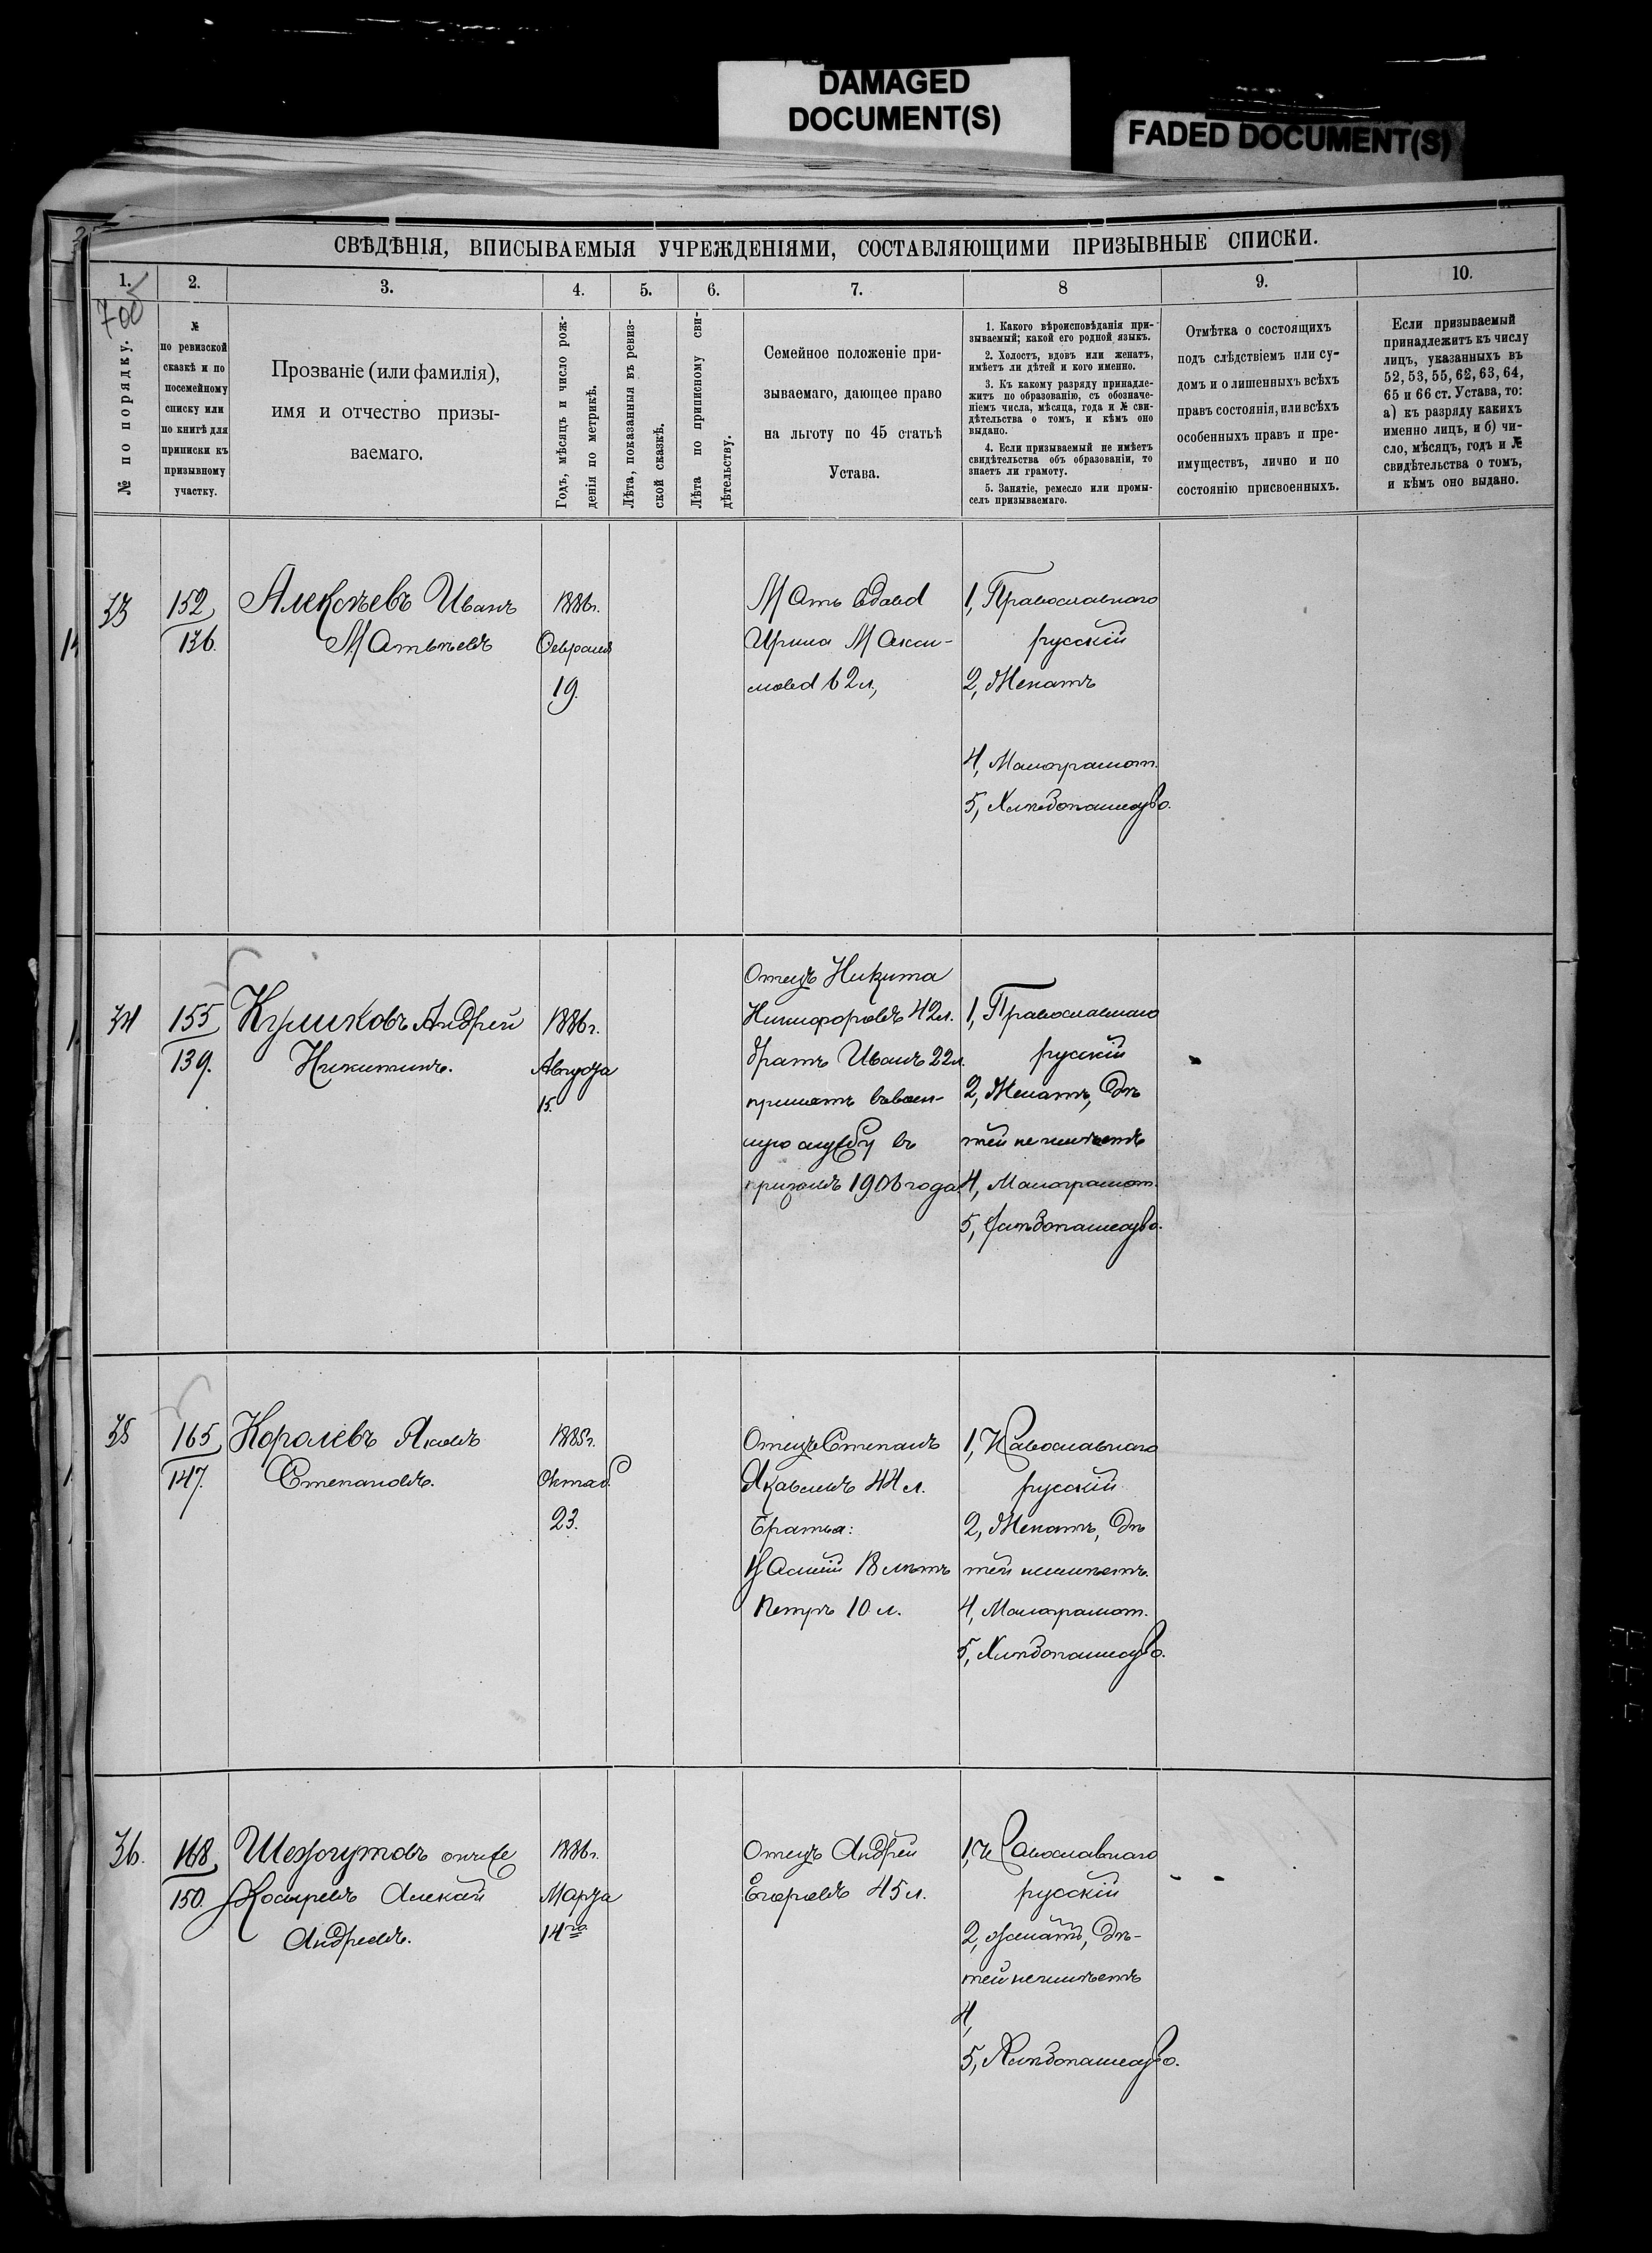 DAMAGED
DOCUMENT(S)
FADED DOCUMENT(S)
СВѢДѢНІЯ, ВПИСЫВАЕМЫЯ УЧРЕЖДЕНІЯМИ, СОСТАВЛЯЮЩИМИ ПРИЗЫВНЫЕ СПИСКИ.
1.
2.
3.
4.
5.
6.
7.
8
9.
10.
700
№ по порядку.
№
по ревизской
сказкѣ и по
посемейному
списку или
по книгѣ для
приписки къ
призывному
участку.
Прозваніе (или фамилія),
имя и отчество призы-
ваемаго.
Годъ, мѣсяцъ и число рож-
денія по метрикѣ.
Лѣта, показанныя въ ревиз-
ской сказкѣ.
Лѣта по приписному сви-
дѣтельству.
Семейное положеніе при-
зываемаго, дающее право
на льготу по 45 статьѣ
Устава.
1. Какого вѣроисповѣданія при-
зываемый; какой его родной языкъ.
2. Холостъ, вдовъ или женатъ,
имѣетъ ли дѣтей и кого именно.
3. Къ какому разряду принадле-
житъ по образованію, съ обозначе-
ніемъ числа, мѣсяца, года и № сви-
дѣтельства о томъ, и кѣмъ оно
выдано.
4. Если призываемый не имѣетъ
свидѣтельства объ образованіи, то
знаетъ ли грамоту.
5. Занятіе, ремесло или промы-
селъ призываемаго.
Отмѣтка о состоящихъ
подъ слѣдствіемъ или су-
домъ и о лишенныхъ всѣхъ
правъ состоянія, или всѣхъ
особенныхъ правъ и пре-
имуществъ, лично и по
состоянію присвоенныхъ.
Если призываемый
принадлежитъ къ числу
лицъ, указанныхъ въ
52, 53, 55, 62, 63, 64,
65 и 66 ст. Устава, то:
а) къ разряду какихъ
именно лицъ, и б) чи-
сло, мѣсяцъ, годъ и №
свидѣтельства о томъ,
и кѣмъ оно выдано.
33
152
136.
Алексѣевъ Иванъ
Матвѣевъ
1886г.
Февраля
19.
Мать вдова
Ирина Макси-
мова 62 л,
1, Православнаго
русскій
2, Женатъ
4, Малограмот.
5, Хлѣбопашество.
34
155
139.
Куликовъ Андрей
Никитинъ.
1886г.
Августа
15.
Отецъ Никита
Никифоровъ 42л.
братъ Иванъ 22л.
принятъ въ воен-
ную службу въ
призывъ 1906 года.
1, Православнаго
русскій
2, Женатъ, дѣ
тей не имѣетъ
4, Малограмот.
5, Хлѣбопашество.
35
165
147.
Королевъ Яковъ
Степановъ.
1885г.
Октяб.
23.
Отецъ Степанъ
Яковлевъ 44 л.
Братья:
18 лѣтъ
Петръ 10 л.
1, Православнаго
русскій
2, Женатъ, дѣ
тей неимѣетъ.
4, Малограмот.
5, Хлѣбопашество.
36.
168
150.
онже
Косыревъ Алексѣй
Андреевъ.
1886г.
Марта
14го
Отецъ Андрей
Егоровъ 45 л.
1, Православнаго
русскій
2, женатъ, дѣ-
тей неимѣетъ
4,
5, Хлѣбопашество.